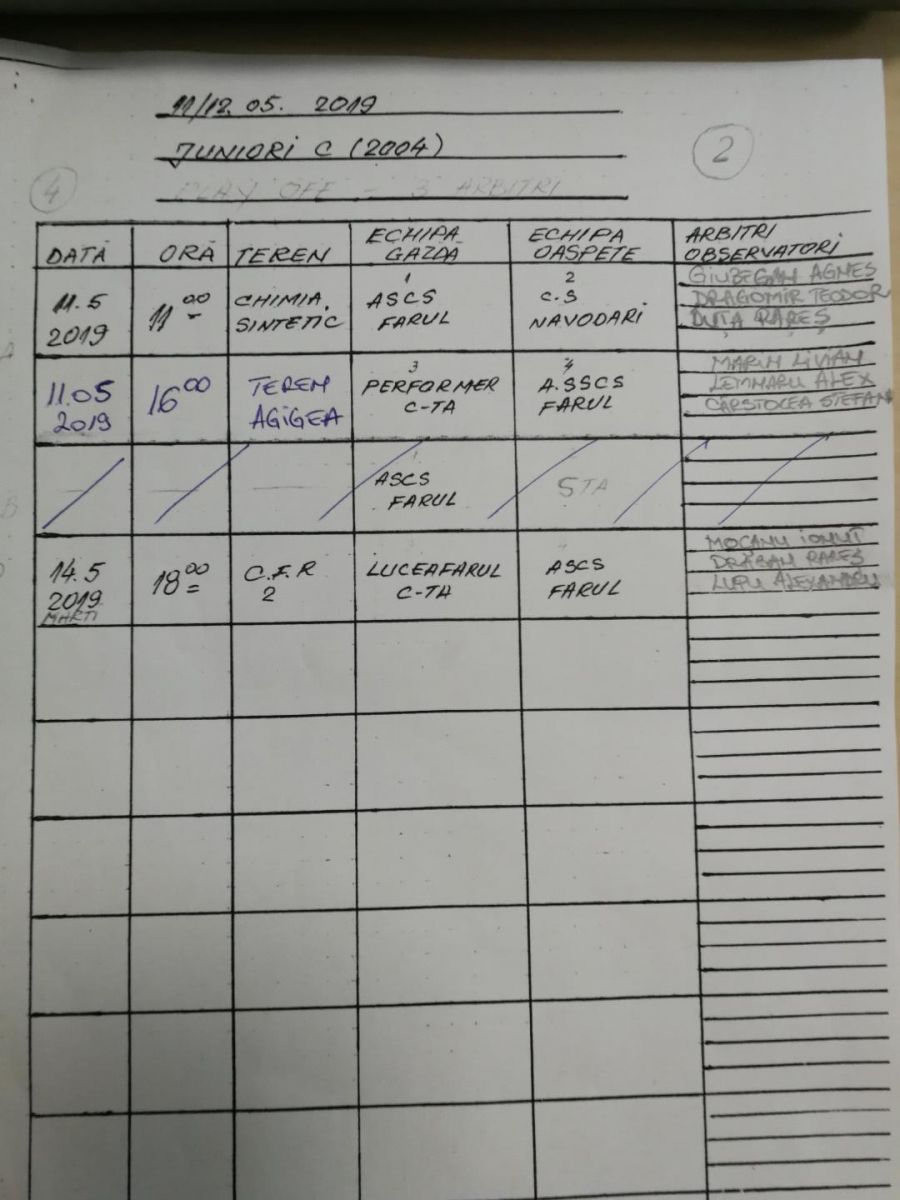 11/12.05. 2019
JUNIORI C (2004)
2
4
PLAY OFF - 3 ARBITRI
DATĂ ORĂ TEREN ECHIPA GAZDĂ ECHIPA OASPETE ARBITRI OBSERVATORI
1 2
11.5 2019 11 00 CHIMIA SINTETIC ASCS FARUL C.S NAVODARI
GIUZEGAN AGNES
DRAGOMIR TEODOR
DUȚA RAREȘ
3 4
11.05 2019 16 00 TEREN AGIGEA PERFORMER C-TA A.SSCS FARUL
MARIN LIVIAN
LEMNARU ALEX
CÂRSTOCEA STEFAN
1
ASCS FARUL STA
14.5 2019 MARTI 18 00 C.F.R 2 LUCEAFARUL C-TA ASCS FARUL
MOCANU IONUȚ
DRĂGAN RAREȘ
LUPU ALEXANDRU